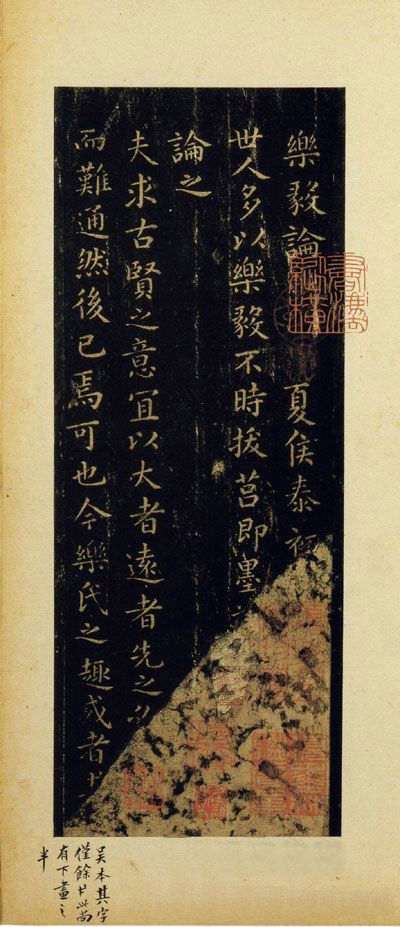 樂毅論 夏侯泰
世人多以樂毅不時拔莒即墨
論之
夫求古賢之意宜以大者遠者先之
而難通然後已焉可也今樂氏之趣或者
吴本其字
僅餘 此尚
有下畫之
半